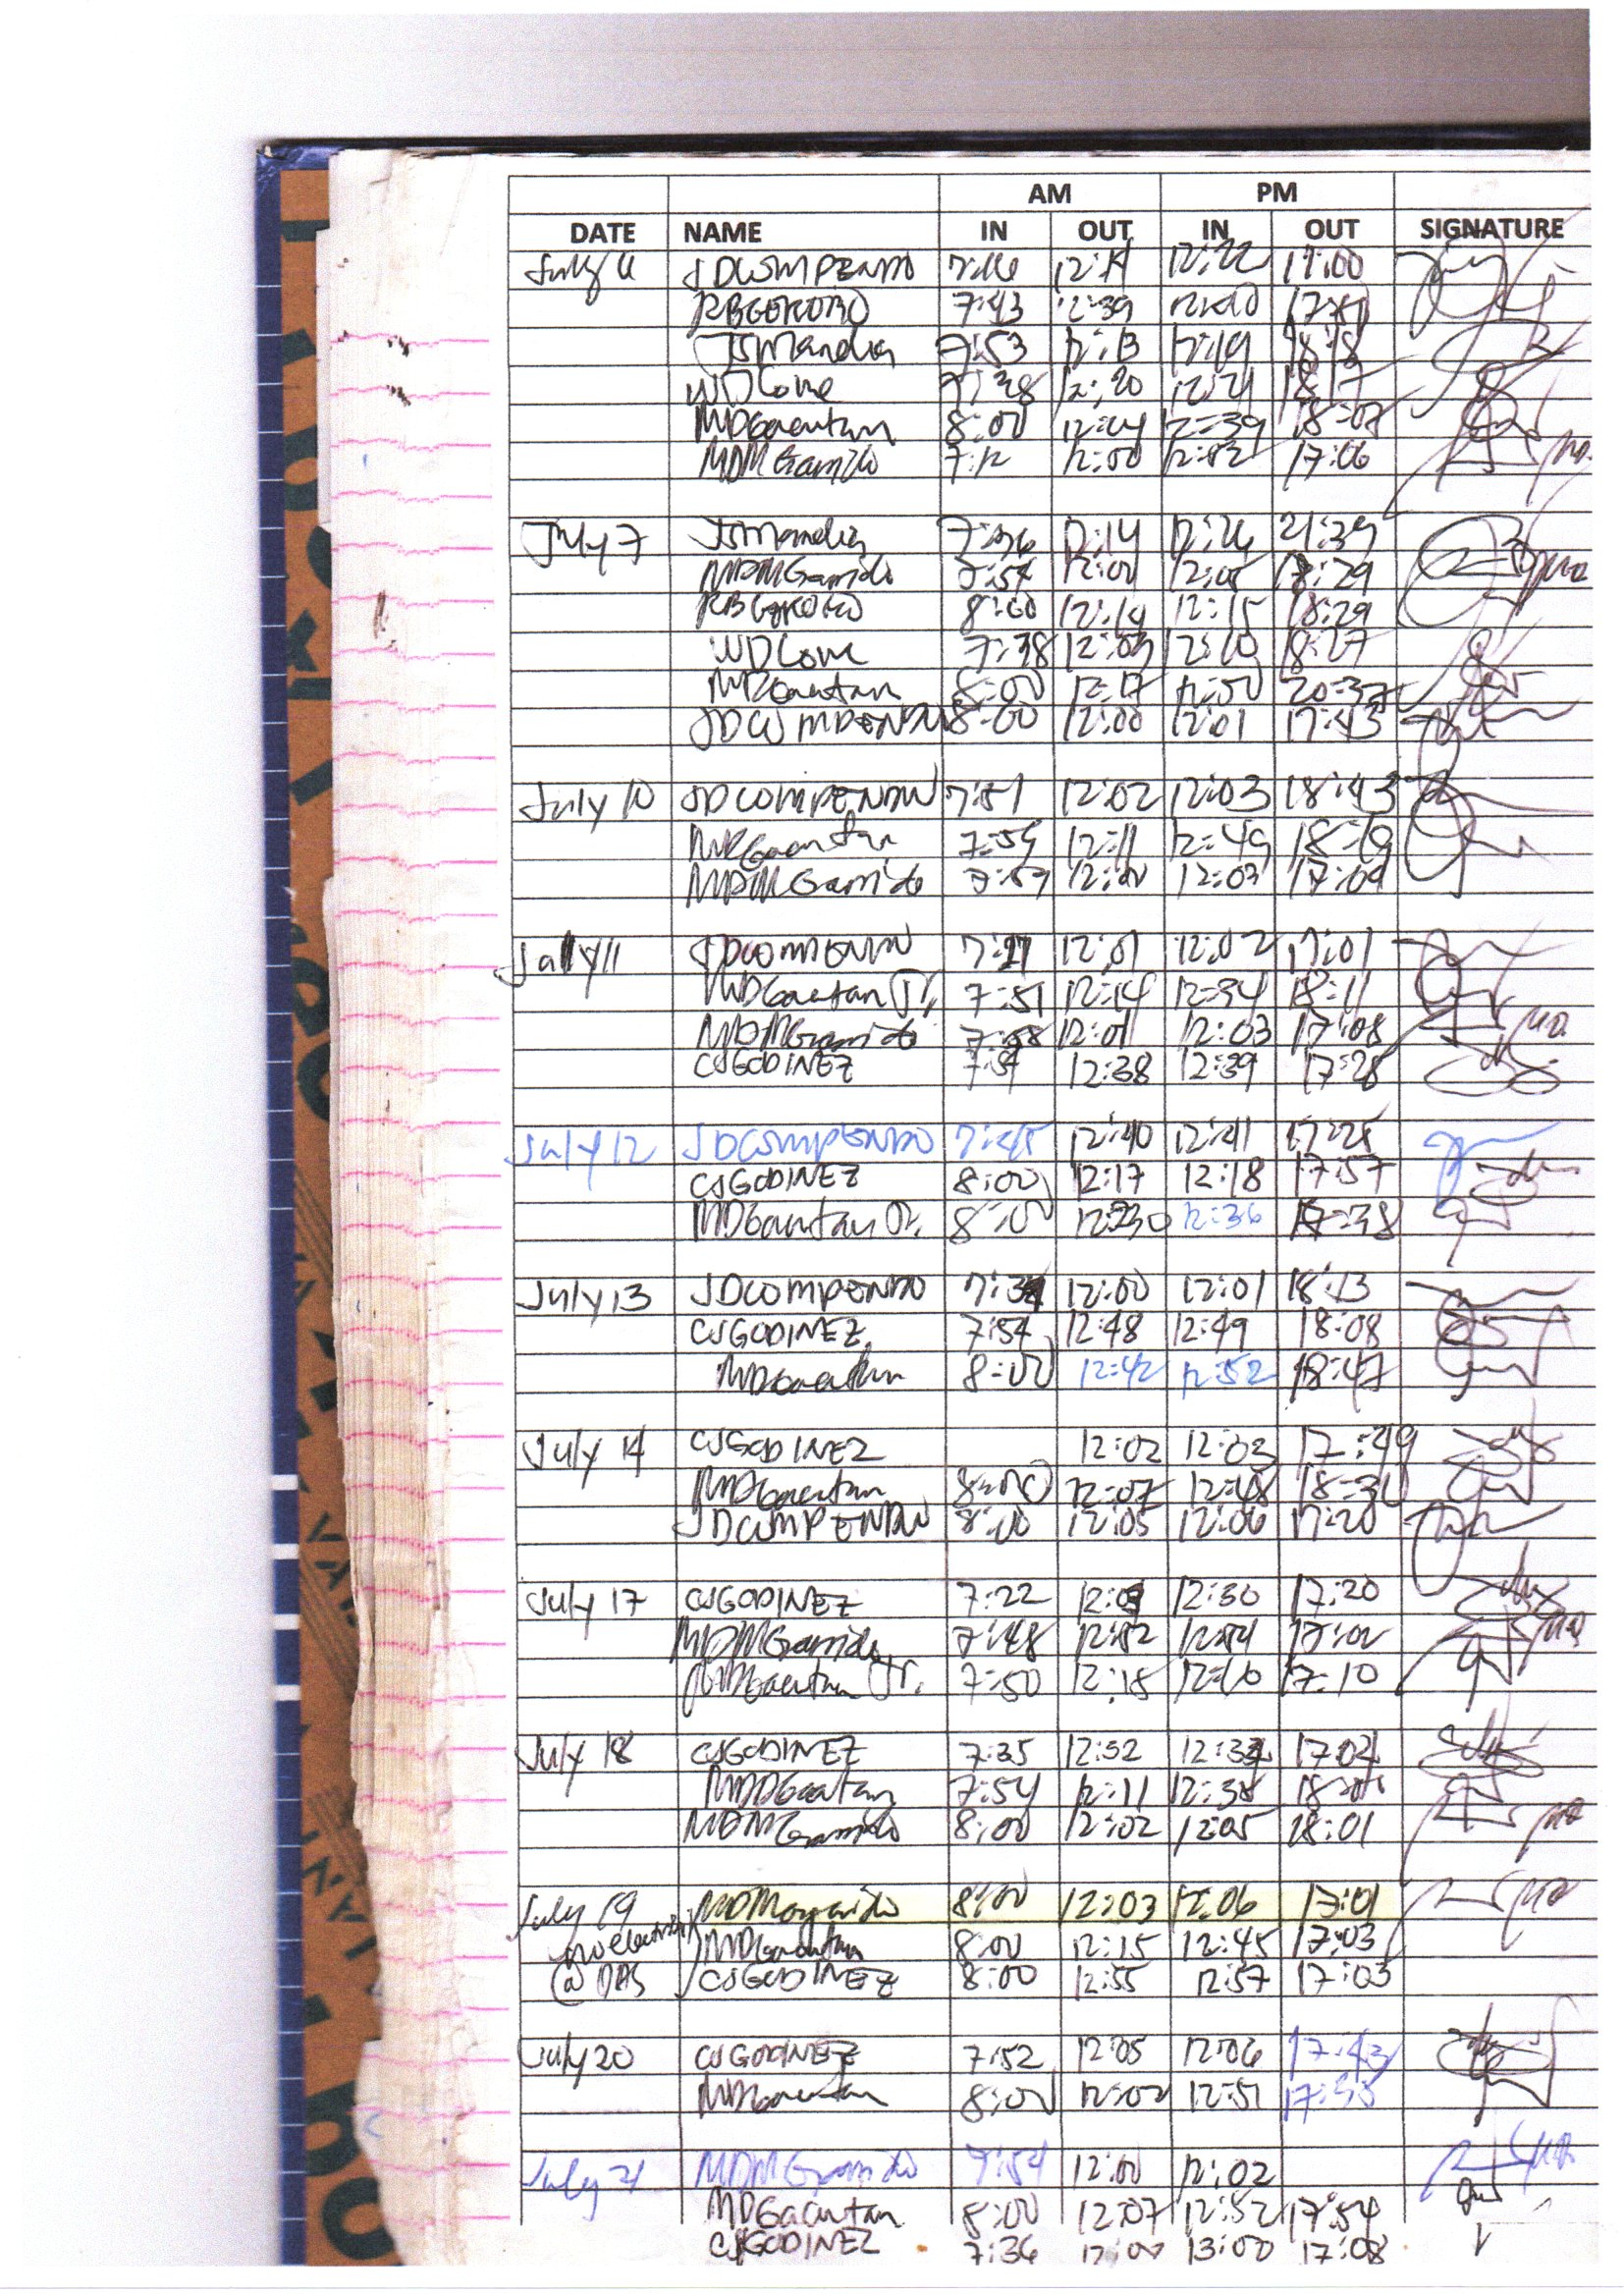 AM PM
DATE NAME IN OUT IN OUT SIGNATURE
July 6 JDCOMPENDIO 7:16 12:22 17:00
7:43 12:39 12:40
JSMandia 7:53 12:13 12:19 18:18
WDCove 7:38 12:20 12:21 18:17
MDGacutan 8:00 12:04 12:39 18:07
MDMGarrido 7:12 12:00 12:02 17:06
July 7 JSMandia 7:36 12:14 12:26 21:39
MDMGarrido 7:54 12:01 12:05 18:29
8:00 12:14 12:15 18:29
WDCove 7:38 12:03 12:10 18:27
MDGacutan 8:00 12:17 12:50 20:37
JDCOMPENDIO 8:00 12:00 12:01 17:43
July 10 JDCOMPENDIO 7:51 12:02 12:03 18:43
MDGacutan 7:59 12:11 12:49 18:19
MDMGarrido 7:59 12:00 12:03 17:09
July 11 JDCOMPENDIO 12:01 12:02 17:01
MDGacutan Jr. 7:51 12:14 12:34 18:11
MDMGarrido 7:58 12:01 12:03 17:08
CSGODINEZ 12:38 12:39 17:28
July 12 JDCOMPENDIO 7:45 12:40 12:41 17:25
CSGODINEZ 8:00 12:17 12:18 17:57
MDGacutan Jr. 8:00 12:30 12:36 17:38
July 13 JDCOMPENDIO 12:00 12:01 18:13
CSGODINEZ 7:54 12:48 12:49 18:08
MDGacutan 8:00 12:42 12:52 18:47
July 14 CSGODINEZ 12:02 12:03 17:49
MDGacutan 8:00 12:07 12:48 18:30
JDCOMPENDIO 8:00 12:05 12:06 17:20
July 17 CSGODINEZ 7:22 12:30 17:20
MDMGarrido 7:48 12:02 12:04 17:02
MDGacutan Jr. 7:50 12:18 17:10
July 18 CSGODINEZ 7:35 12:32 12:33 17:02
MDGacutan 7:54 12:11 12:38
MDMGarrido 8:00 12:02 12:05 18:01
July 19 MDMGarrido 8:00 12:03 12:06 17:01
no electricity MDGacutan 8:00 12:15 12:45 17:03
@ DAS CSGODINEZ 8:00 12:55 12:57 17:03
July 20 CSGODINEZ 7:52 12:05 12:06 17:43
MDGacutan 8:00 12:02 12:51 17:55
July 21 MDMGarrido 7:54 12:00 12:02
MDGacutan 8:00 12:07 12:52 17:54
CSGODINEZ 7:36 12:00 13:00 17:08